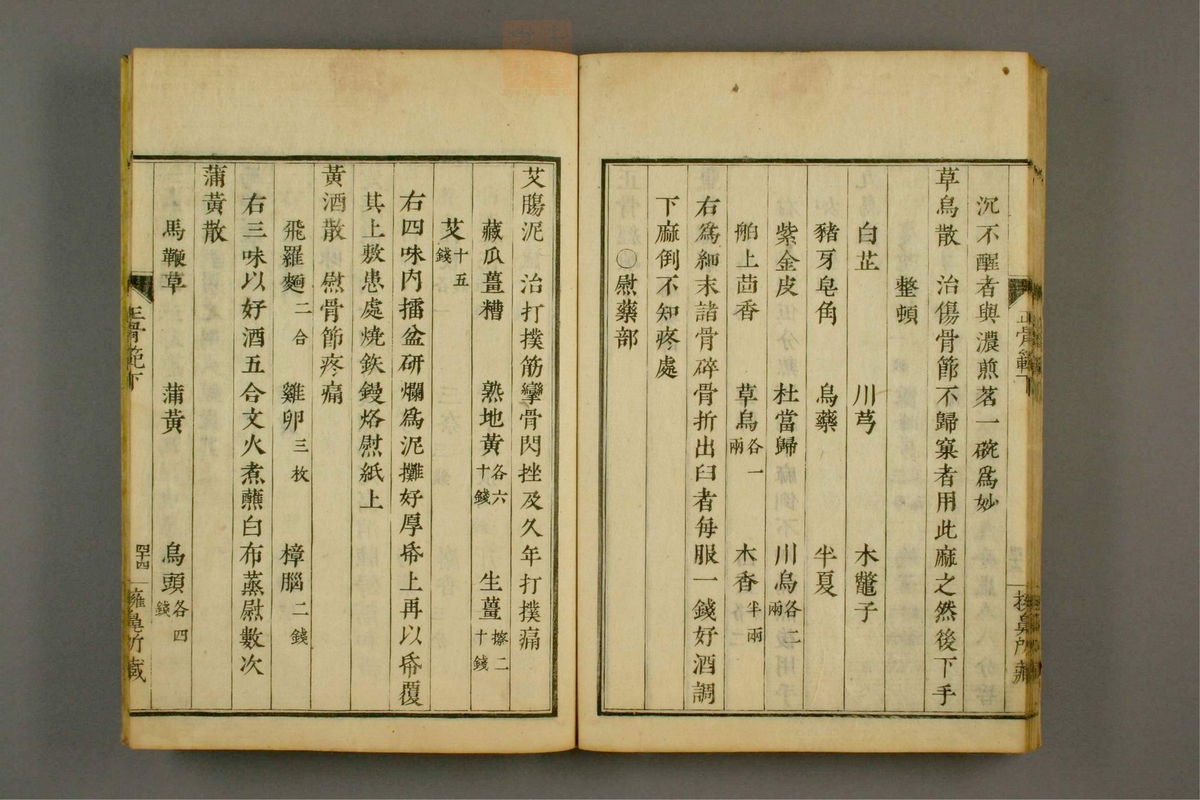 沉不醒者與濃煎茗一碗爲妙
草烏散　治傷骨節不歸窠者用此麻之然後下手
整頓
白芷　川芎　木鼈子
豬牙皂角　烏藥　半夏
紫金皮　杜當歸　川烏各二兩
舶上茴香　草烏各一兩　木香半兩
右爲細末諸骨碎骨折出臼者每服一錢好酒調
下麻倒不知疼處
〇慰藥部
艾膓泥　治打撲筋攣骨閃挫及久年打撲痛
藏瓜薑糟　熟地黃各六十錢　生薑擦二十錢
艾十五錢
右四味內擂盆研爛爲泥攤好厚帋上再以帋覆
其上敷患處燒鉄鏝烙慰紙上
黃酒散　慰骨節疼痛
飛羅麵二合　雞卵三枚　樟腦二錢
右三味以好酒五合文火煮蘸白布蒸慰數次
蒲黃散
馬鞭草　蒲黃　烏頭各四錢
正骨範下　四十四